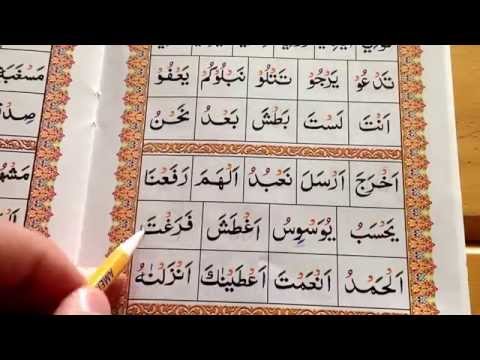 تَدْعُوْ يَرْجُوْ تَتْلُوْ نَبْلُوَكُمْ يَعْفُوْ
اَنْتَ لَسْتَ بَطْشَ بَعْدُ نَحْنُ
اَخْرَجَ اَرْسَلَ نَعْبُدُ اَلْهَمَ رَفَعْنَا
يَحْسَبُ يُوَسْوِسُ اَغْطَشَ فَرَغْتَ
اَلْحَمْدُ اَنْعَمْتَ اَعْطَيْنٰكَ اَنْزَلْنٰهُ